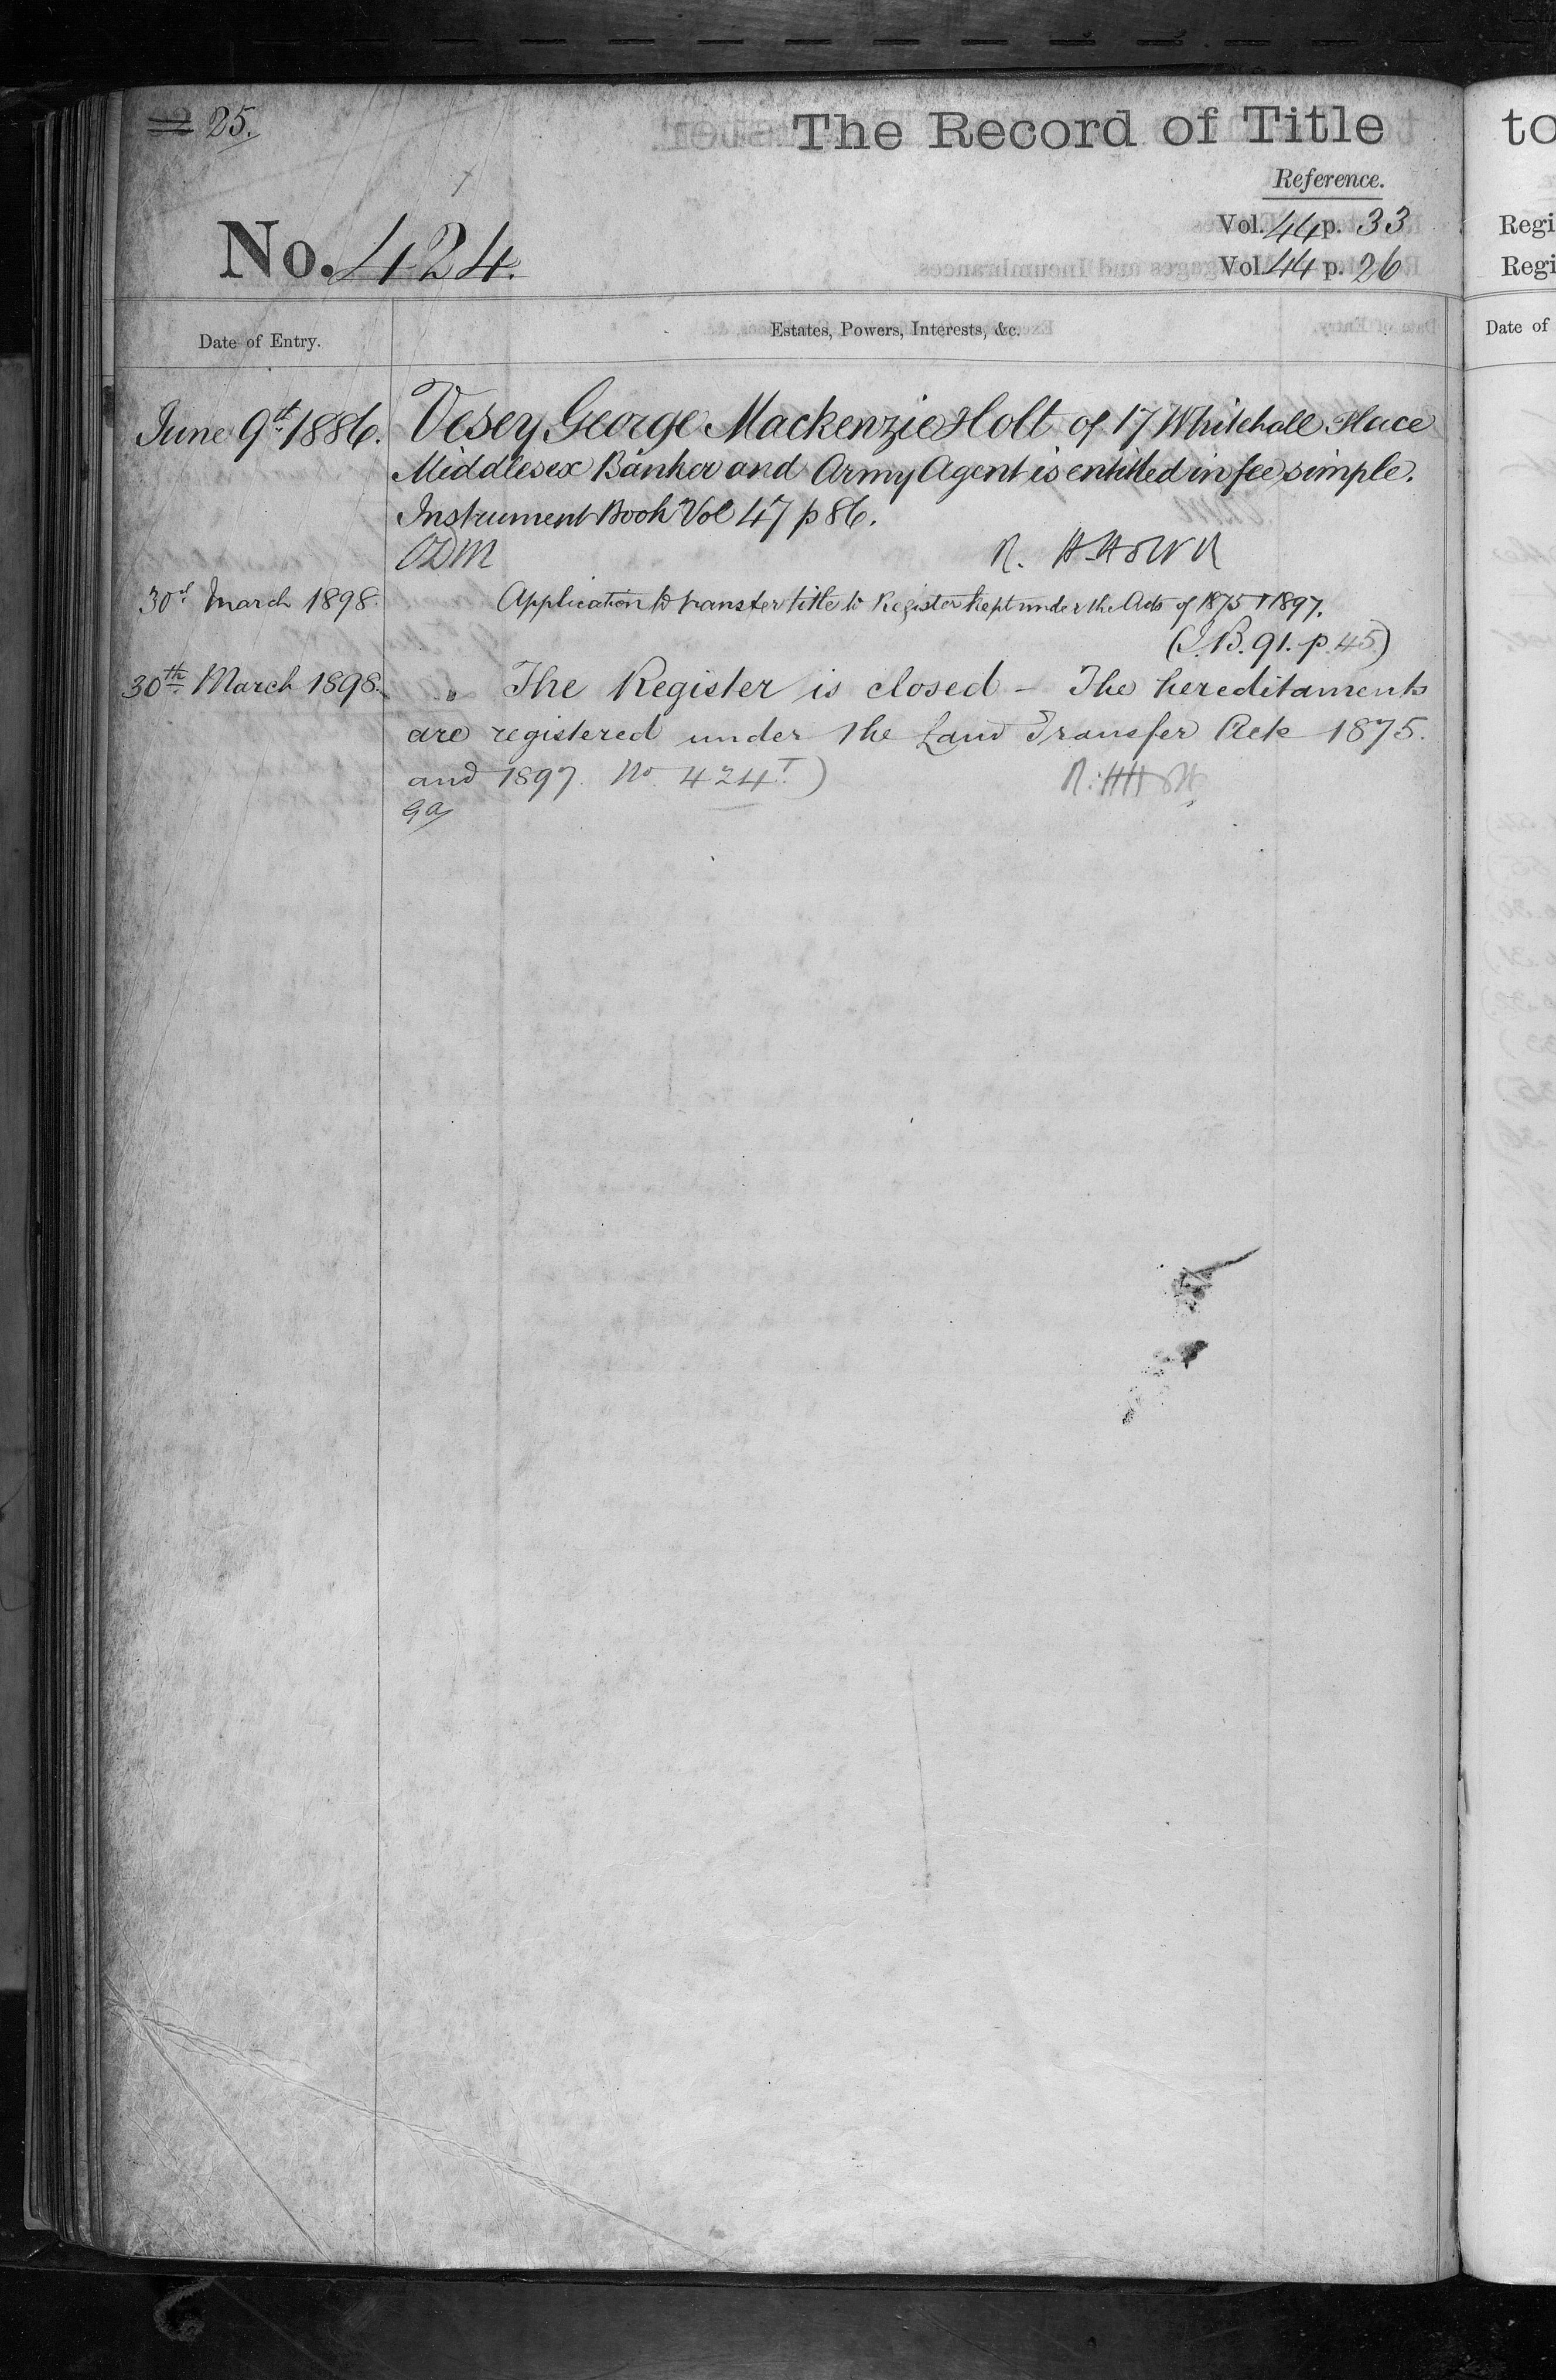 25.
The Record of Title
Reference.
No. 424.
Vol. 44 p. 33
Vol. 44 p. 26
Date of Entry.
Estates, Powers, Interests, &c.
June 9th 1886. Vesey George Mackenzie Holt of 17 Whitehall Place
Middlesex Banker and Army Agent is entitled in fee simple.
Instrument Book Vol 47 p 86.
ODM
30th March 1898. Application to transfer title to Register kept under the Acts of 1875 & 1897.
(I.B. 91. p. 45)
30th March 1898. „ The Register is closed – The hereditaments
are registered under the Land Transfer Acts 1875.
and 1897. No. 424 T.)
to
Regi
Regi
Date of